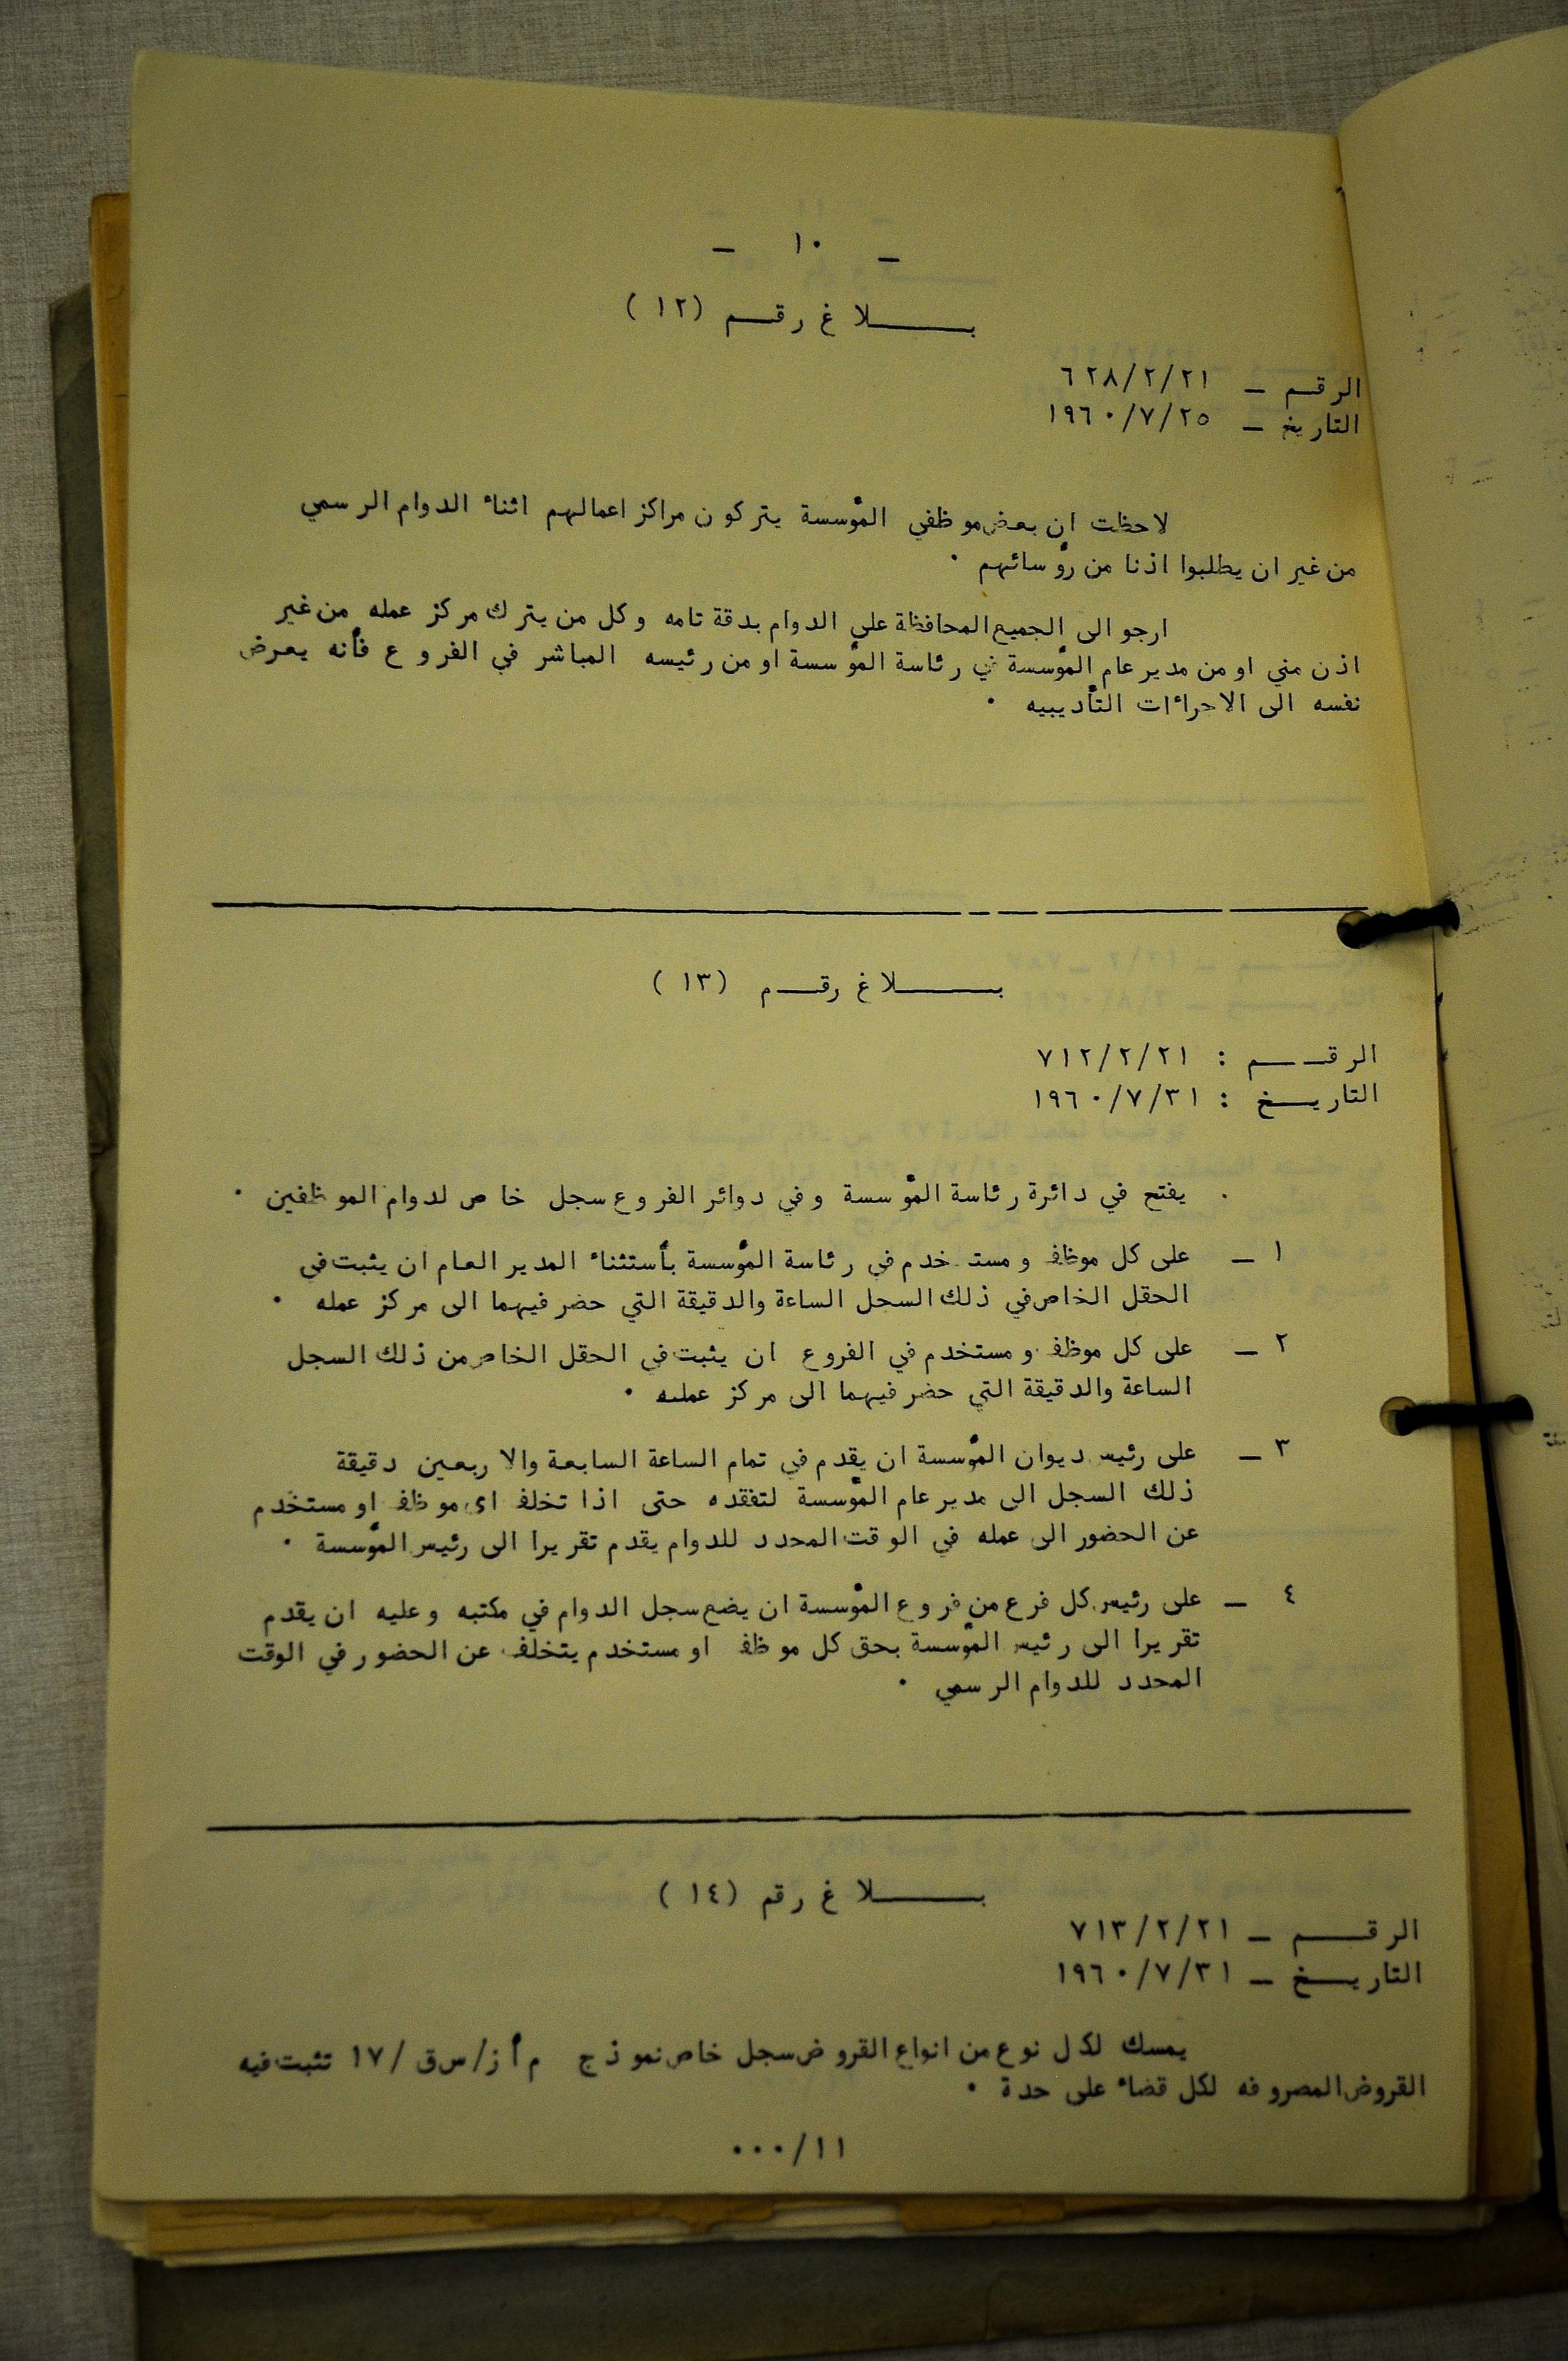 - ١٠ -
بـــــلاغ رقـــم (١٢)
الرقـــم ــ ٦٢٨/٢/٢١
التاريخ ــ ١٩٦٠/٧/٢٥
لاحظت ان بعض موظفي المؤسسة يتركون مراكز اعمالهم اثناء الدوام الرسمي
من غير ان يطلبوا اذنا من رؤسائهم ٠
ارجو الى الجميع المحافظة على الدوام بدقة تامه وكل من يترك مركز عمله من غير
اذن مني او من مدير عام المؤسسة في رئاسة المؤسسة او من رئيسه المباشر في الفروع فأنه يعرض
نفسه الى الاجراءات التأديبيه ٠
بـــــلاغ رقـــم (١٣)
الرقـــم : ٧١٢/٢/٢١
التاريـــخ : ١٩٦٠/٧/٣١
٠ يفتح في دائرة رئاسة المؤسسة وفي دوائر الفروع سجل خاص لدوام الموظفين ٠
١ ــ على كل موظف ومستخدم في رئاسة المؤسسة بأستثناء المدير العام ان يثبت في
الحقل الخاص في ذلك السجل الساعة والدقيقة التي حضر فيهما الى مركز عمله ٠
٢ ــ على كل موظف ومستخدم في الفروع ان يثبت في الحقل الخاص من ذلك السجل
الساعة والدقيقة التي حضر فيهما الى مركز عمله ٠
٣ ــ على رئيس ديوان المؤسسة ان يقدم في تمام الساعة السابعة والاربعين دقيقة
ذلك السجل الى مدير عام المؤسسة لتفقده حتى اذا تخلف اى موظف او مستخدم
عن الحضور الى عمله في الوقت المحدد للدوام يقدم تقريرا الى رئيس المؤسسة ٠
٤ ــ على رئيس كل فرع من فروع المؤسسة ان يضع سجل الدوام في مكتبه وعليه ان يقدم
تقريرا الى رئيس المؤسسة بحق كل موظف او مستخدم يتخلف عن الحضور في الوقت
المحدد للدوام الرسمي ٠
بـــــلاغ رقم (١٤)
الرقـــــم ــ ٧١٣/٢/٢١
التاريـــخ ــ ١٩٦٠/٧/٣١
يمسك لكل نوع من انواع القروض سجل خاص نموذج م أ ز/س ق /١٧ تثبت فيه
القروض المصروفه لكل قضاء على حدة ٠
٠٠٠/١١